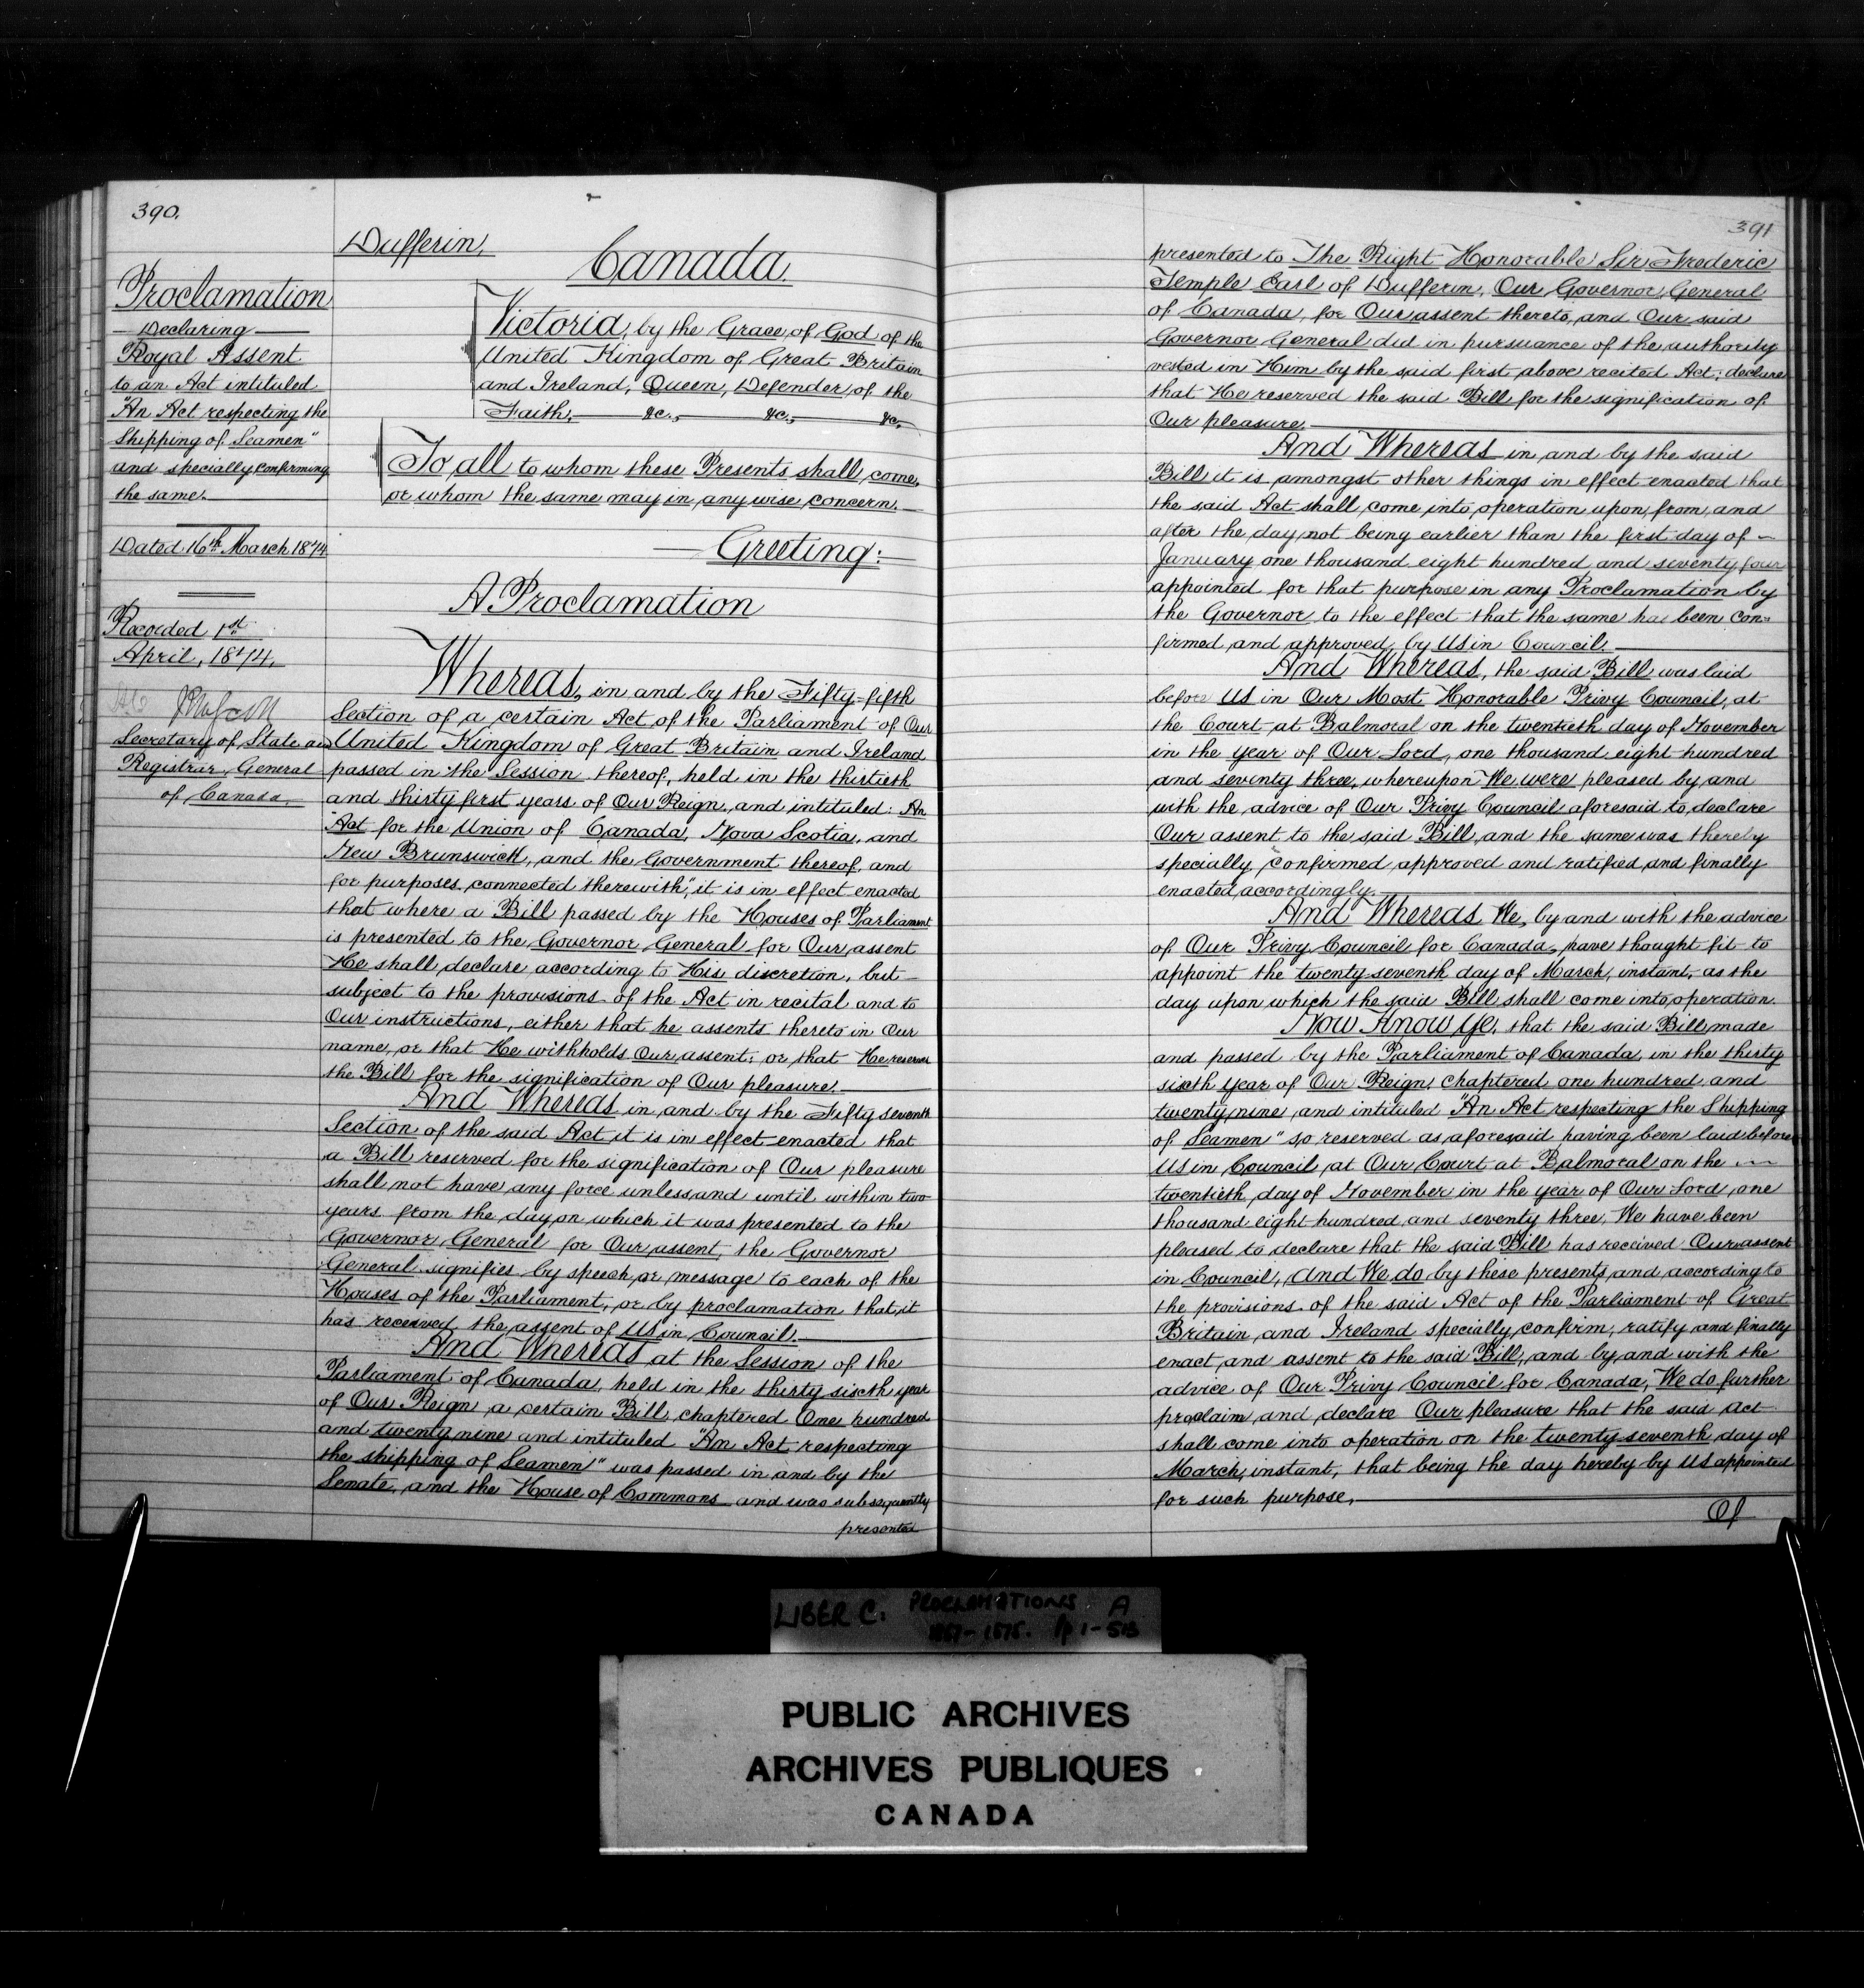 390.
Proclamation
Declaring
Royal Assent
to an Act intituled
"An Act respecting the
Shipping of Seamen"
and specially confirming
the same.
Dated 16th March 1874
Recorded 1st
April, 1874.
Secretary of State and
Registrar General
of Canada.
Dufferin,
Canada.
Victoria, by the Grace of God of the
United Kingdom of Great Britain
and Ireland, Queen, Defender of the
Faith, &c., &c., &c.
To all to whom these Presents shall come,
or whom the same may in any wise concern.
Greeting:
A Proclamation
Whereas, in and by the Fifty-fifth
Section of a certain Act of the Parliament of Our
United Kingdom of Great Britain and Ireland
passed in the Session thereof, held in the thirtieth
and thirty first years of Our Reign, and intituled: An
"Act for the Union of Canada, Nova Scotia, and
New Brunswick, and the Government thereof, and
for purposes connected therewith", it is in effect enacted
that where a Bill passed by the Houses of Parliament
is presented to the Governor General for Our assent
He shall declare according to His discretion, but
subject to the provisions of the Act in recital and to
Our instructions, either that he assents thereto in Our
name, or that He withholds Our assent; or that He reserves
the Bill for the signification of Our pleasure.
And Whereas in and by the Fifty seventh
Section of the said Act it is in effect enacted that
a Bill reserved for the signification of Our pleasure
shall not have any force unless and until within two
years from the day on which it was presented to the
Governor General for Our assent, the Governor
General signifies by speech or message to each of the
Houses of the Parliament, or by proclamation that it
has received the assent of Us in Council.
And Whereas at the Session of the
Parliament of Canada, held in the thirty sixth year
of Our Reign, a certain Bill, chaptered One hundred
and twenty nine and intituled "An Act respecting
the shipping of Seamen" was passed in and by the
Senate, and the House of Commons and was subsequently
presented
391
presented to The Right Honorable Sir Frederic
Temple Earl of Dufferin, Our Governor General
of Canada, for Our assent thereto, and Our said
Governor General did in pursuance of the authority
vested in Him by the said first above recited Act; declare
that He reserved the said Bill for the signification of
Our pleasure.
And Whereas in and by the said
Bill it is amongst other things in effect enacted that
the said Act shall come into operation upon, from, and
after the day, not being earlier than the first day of
January one thousand eight hundred and seventy four
appointed for that purpose in any Proclamation by
the Governor, to the effect that the same has been con=
firmed and approved by Us in Council.
And Whereas, the said Bill was laid
before Us in Our Most Honorable Privy Council, at
the Court at Balmoral on the twentieth day of November
in the year of Our Lord, one thousand eight hundred
and seventy three, whereupon We were pleased by and
with the advice of Our Privy Council aforesaid to declare
Our assent to the said Bill, and the same was thereby
specially confirmed approved and ratified and finally
enacted accordingly.
And Whereas We, by and with the advice
of Our Privy Council for Canada, have thought fit to
appoint the twenty-seventh day of March, instant, as the
day upon which the said Bill shall come into operation.
Now Know Ye, that the said Bill made
and passed by the Parliament of Canada, in the thirty
sixth year of Our Reign, chaptered one hundred and
twenty nine and intituled "An Act respecting the Shipping
of Seamen" so reserved as aforesaid having been laid before
Us in Council at Our Court at Balmoral on the
twentieth day of November in the year of Our Lord, one
thousand eight hundred and seventy three, We have been
pleased to declare that the said Bill has received Our assent
in Council, And We do by these presents, and according to
the provisions of the said Act of the Parliament of Great
Britain and Ireland specially confirm, ratify and finally
enact, and assent to the said Bill, and by and with the
advice of Our Privy Council for Canada, We do further
proclaim and declare Our pleasure that the said Act
shall come into operation on the twenty seventh day of
March, instant, that being the day hereby by Us appointed
for such purpose.
Of
LIBER C. PROCLAMATIONS A
1867-1875. Pp 1-513
PUBLIC ARCHIVES
ARCHIVES PUBLIQUES
CANADA